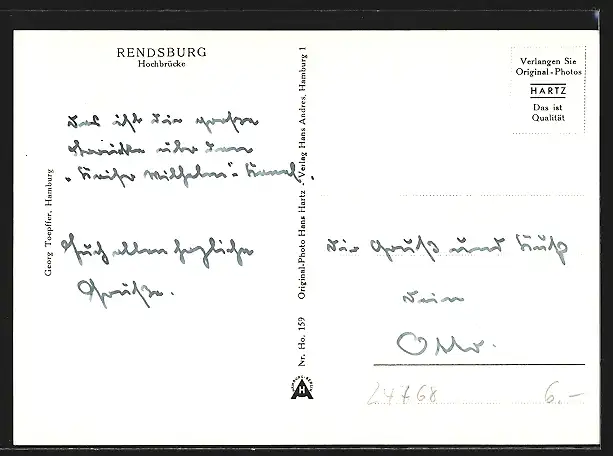 RENDSBURG
Hochbrücke
Das ist die große
Brücke über den
"Kaiser Wilhelm" Kanal.
Euch allen herzliche
Grüße.
Georg Toepffer, Hamburg
Nr. Ho. 159 Original-Photo Hans Hartz - Verlag Hans Andres, Hamburg 1
HAMBURG-BERLIN
Verlangen Sie
Original-Photos
HARTZ
Das ist
Qualität
Dir Gruß und Kuß
Dein
Otto.
24768
6.-